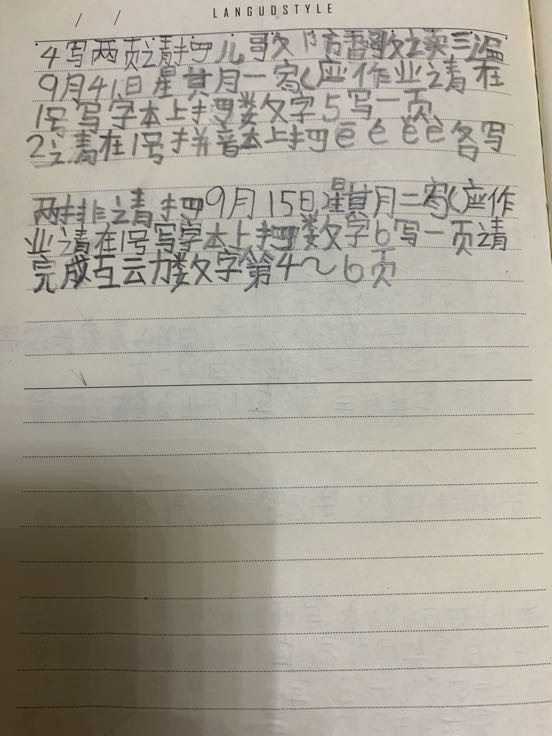 LANGUOSTYLE
4写两页请把儿歌 防雷歌读三遍
9月41日星其月一家心应作业请在
1号写字本上把数文字5写一页
2请在1号拼音本上把ē é ě è各写
两排请把9月15日星其月二家心应作
业请在1号写字本上把数文字6写一页请
完成互云力数文字第4~6页